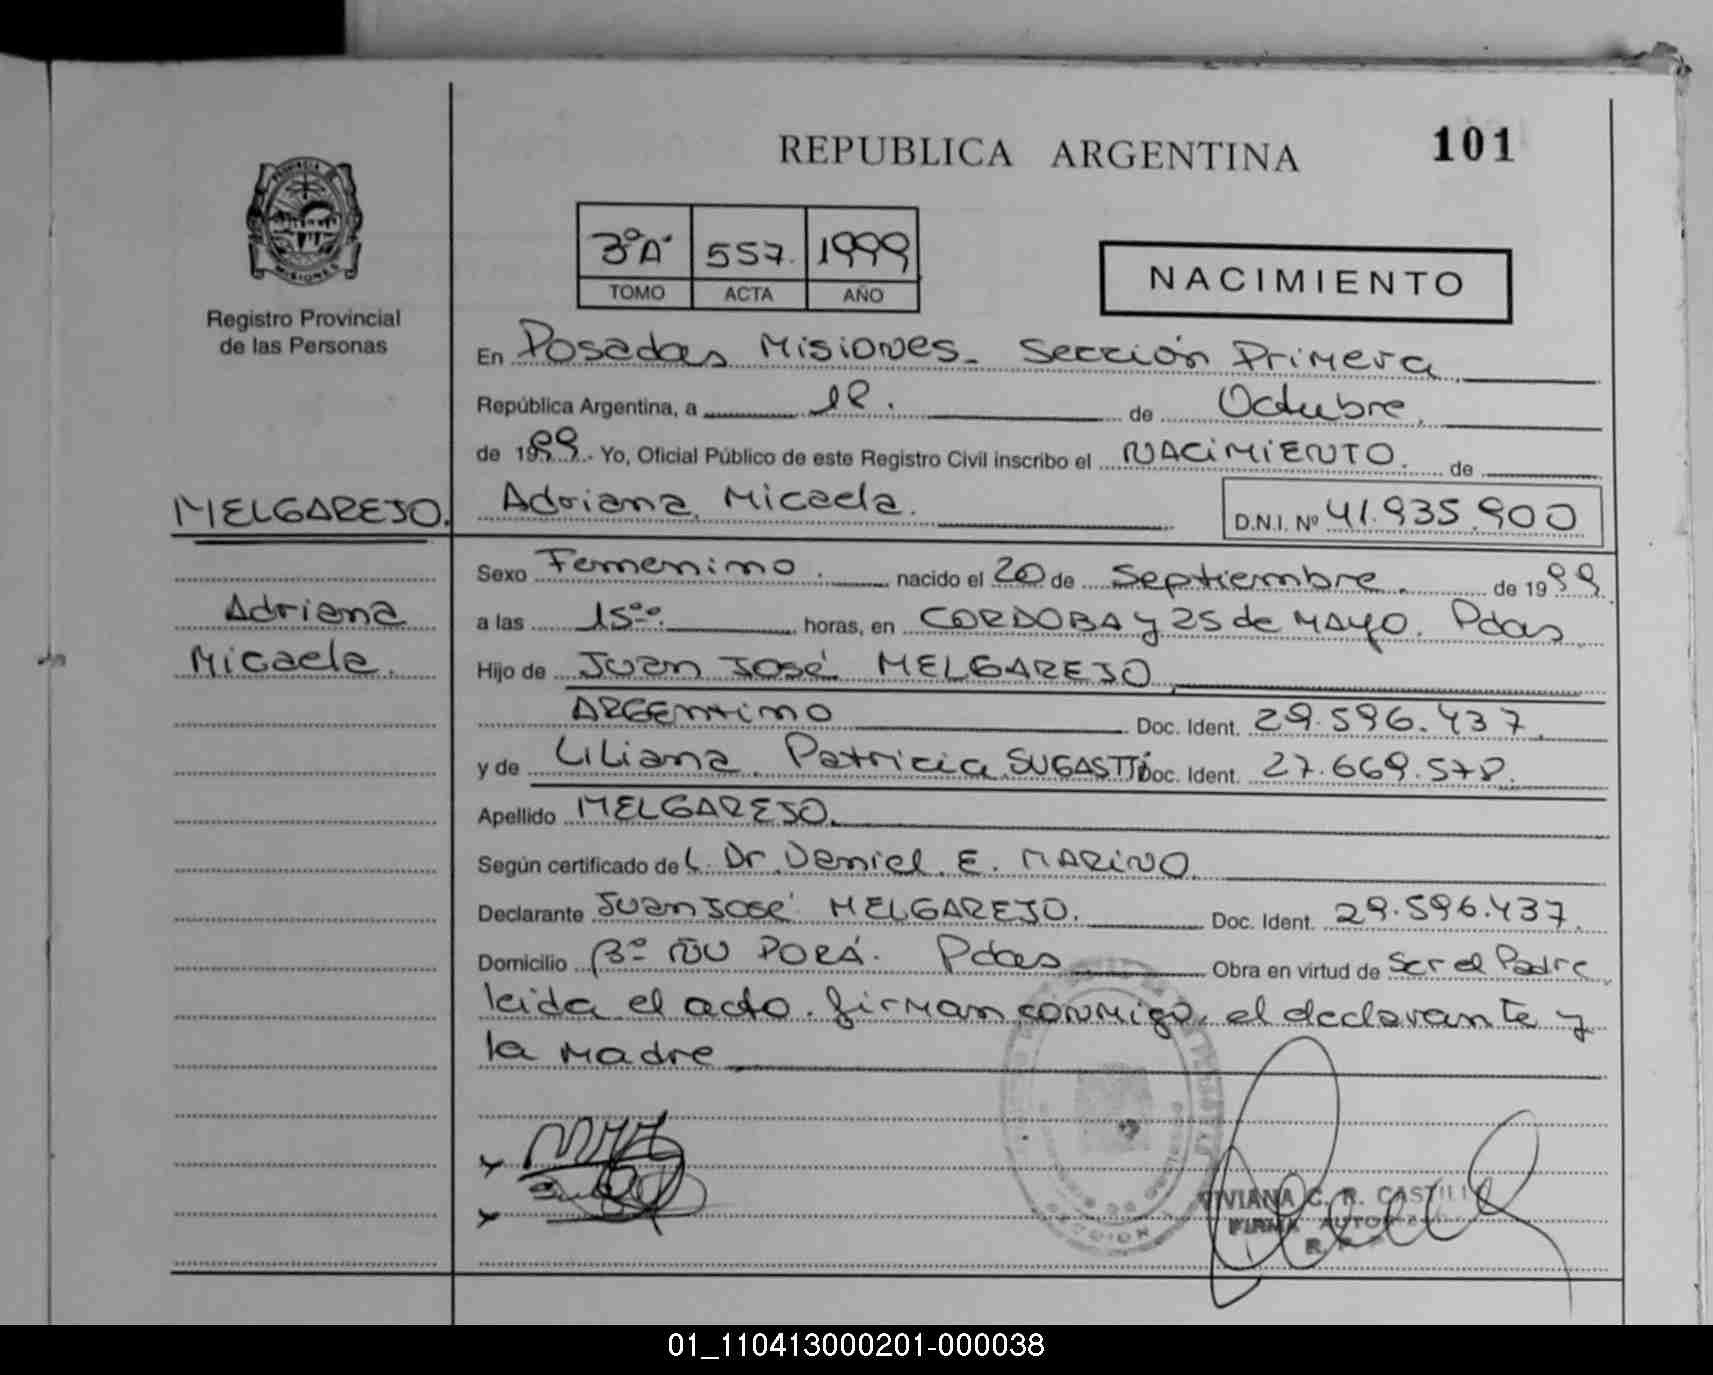 REPUBLICA ARGENTINA
101
PROVINCIA DE
MISIONES
Registro Provincial
de las Personas
3ºA 557. 1999
TOMO ACTA AÑO
NACIMIENTO
En Posadas Misiones. Sección Primera
República Argentina, a 1º. de Octubre,
de 1999. Yo, Oficial Público de este Registro Civil inscribo el NACIMIENTO. de
MELGAREJO.
Adriana Micaela.
D.N.I. Nº 41.935.900
Sexo Femenino. nacido el 20 de Septiembre. de 1999
Adriana
Micaela.
a las 15ºº. horas, en CORDOBA y 25 de MAYO. Pdas
Hijo de JUAN JOSÉ MELGAREJO
ARGENTINO Doc. Ident. 29.596.437.
y de Liliana Patricia SUGASTTI Doc. Ident. 27.669.578.
Apellido MELGAREJO.
Según certificado del Dr Daniel E. MARINO
Declarante JUAN JOSÉ MELGAREJO. Doc. Ident. 29.596.437.
Domicilio Bº ÑU PORÁ. Pdas Obra en virtud de Ser el Padre
leida el acto. firman conmigo, el declarante y
la Madre
VIVIANA C. R. CASTILL
FIRMA
01_110413000201-000038